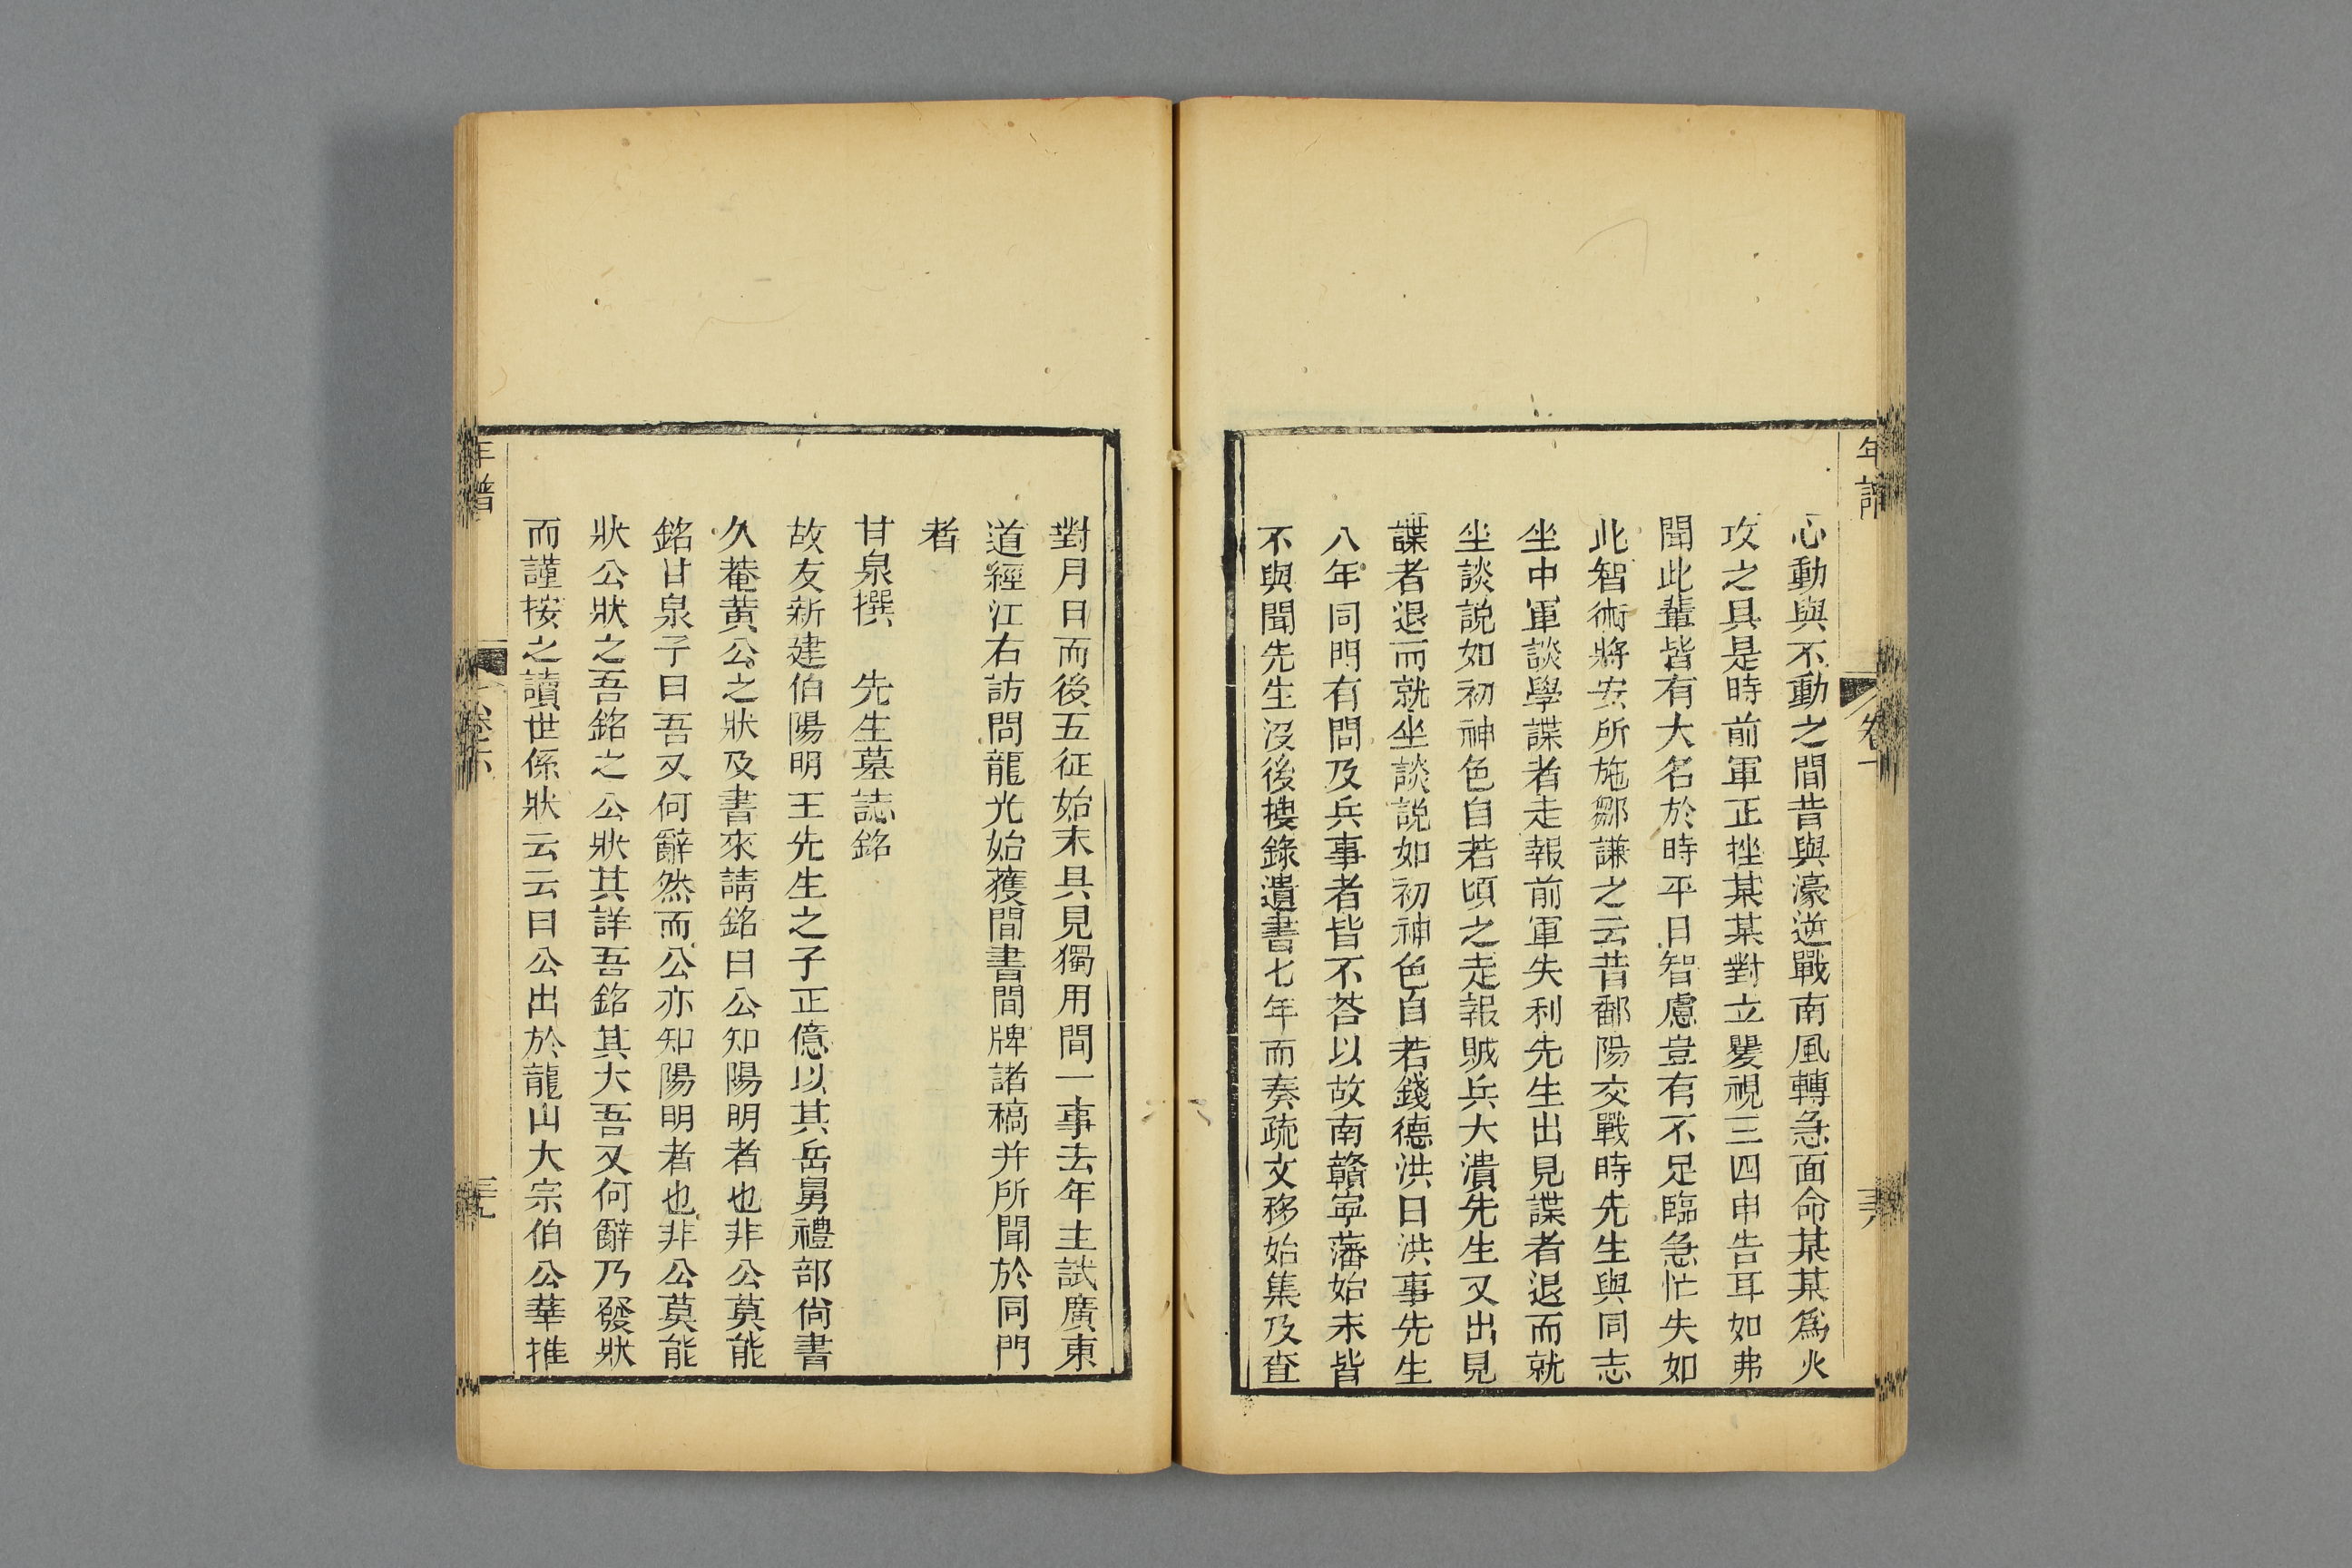 心動與不動之間昔與濠逆戰南風轉急面命某某爲火
攻之具是時前軍正挫某某對立矍視三四申告耳如弗
聞此輩皆有大名於時平日智慮豈有不足臨急忙失如
此智術將安所施鄒謙之云昔鄱陽交戰時先生與同志
坐中軍談學諜者走報前軍失利先生出見諜者退而就
坐談説如初神色自若頃之走報賊兵大潰先生又出見
諜者退而就坐談説如初神色自若錢德洪曰洪事先生
八年同門有問及兵事者皆不荅以故南贛寧藩始末皆
不與聞先生沒後摟錄遺書七年而奏疏文移始集及查
對月日而後五征始末具見獨用間一事去年主試廣東
道經江右訪問龍光始獲間書間牌諸稿并所聞於同門
者
甘泉撰　先生墓誌銘
故友新建伯陽明王先生之子正億以其岳舅禮部尙書
久菴黄公之狀及書來請銘曰公知陽明者也非公莫能
銘甘泉子曰吾又何辭然而公亦知陽明者也非公莫能
狀公狀之吾銘之公狀其詳吾銘其大吾又何辭乃發狀
而謹按之讀世係狀云云曰公出於龍山大宗伯公華推
年譜